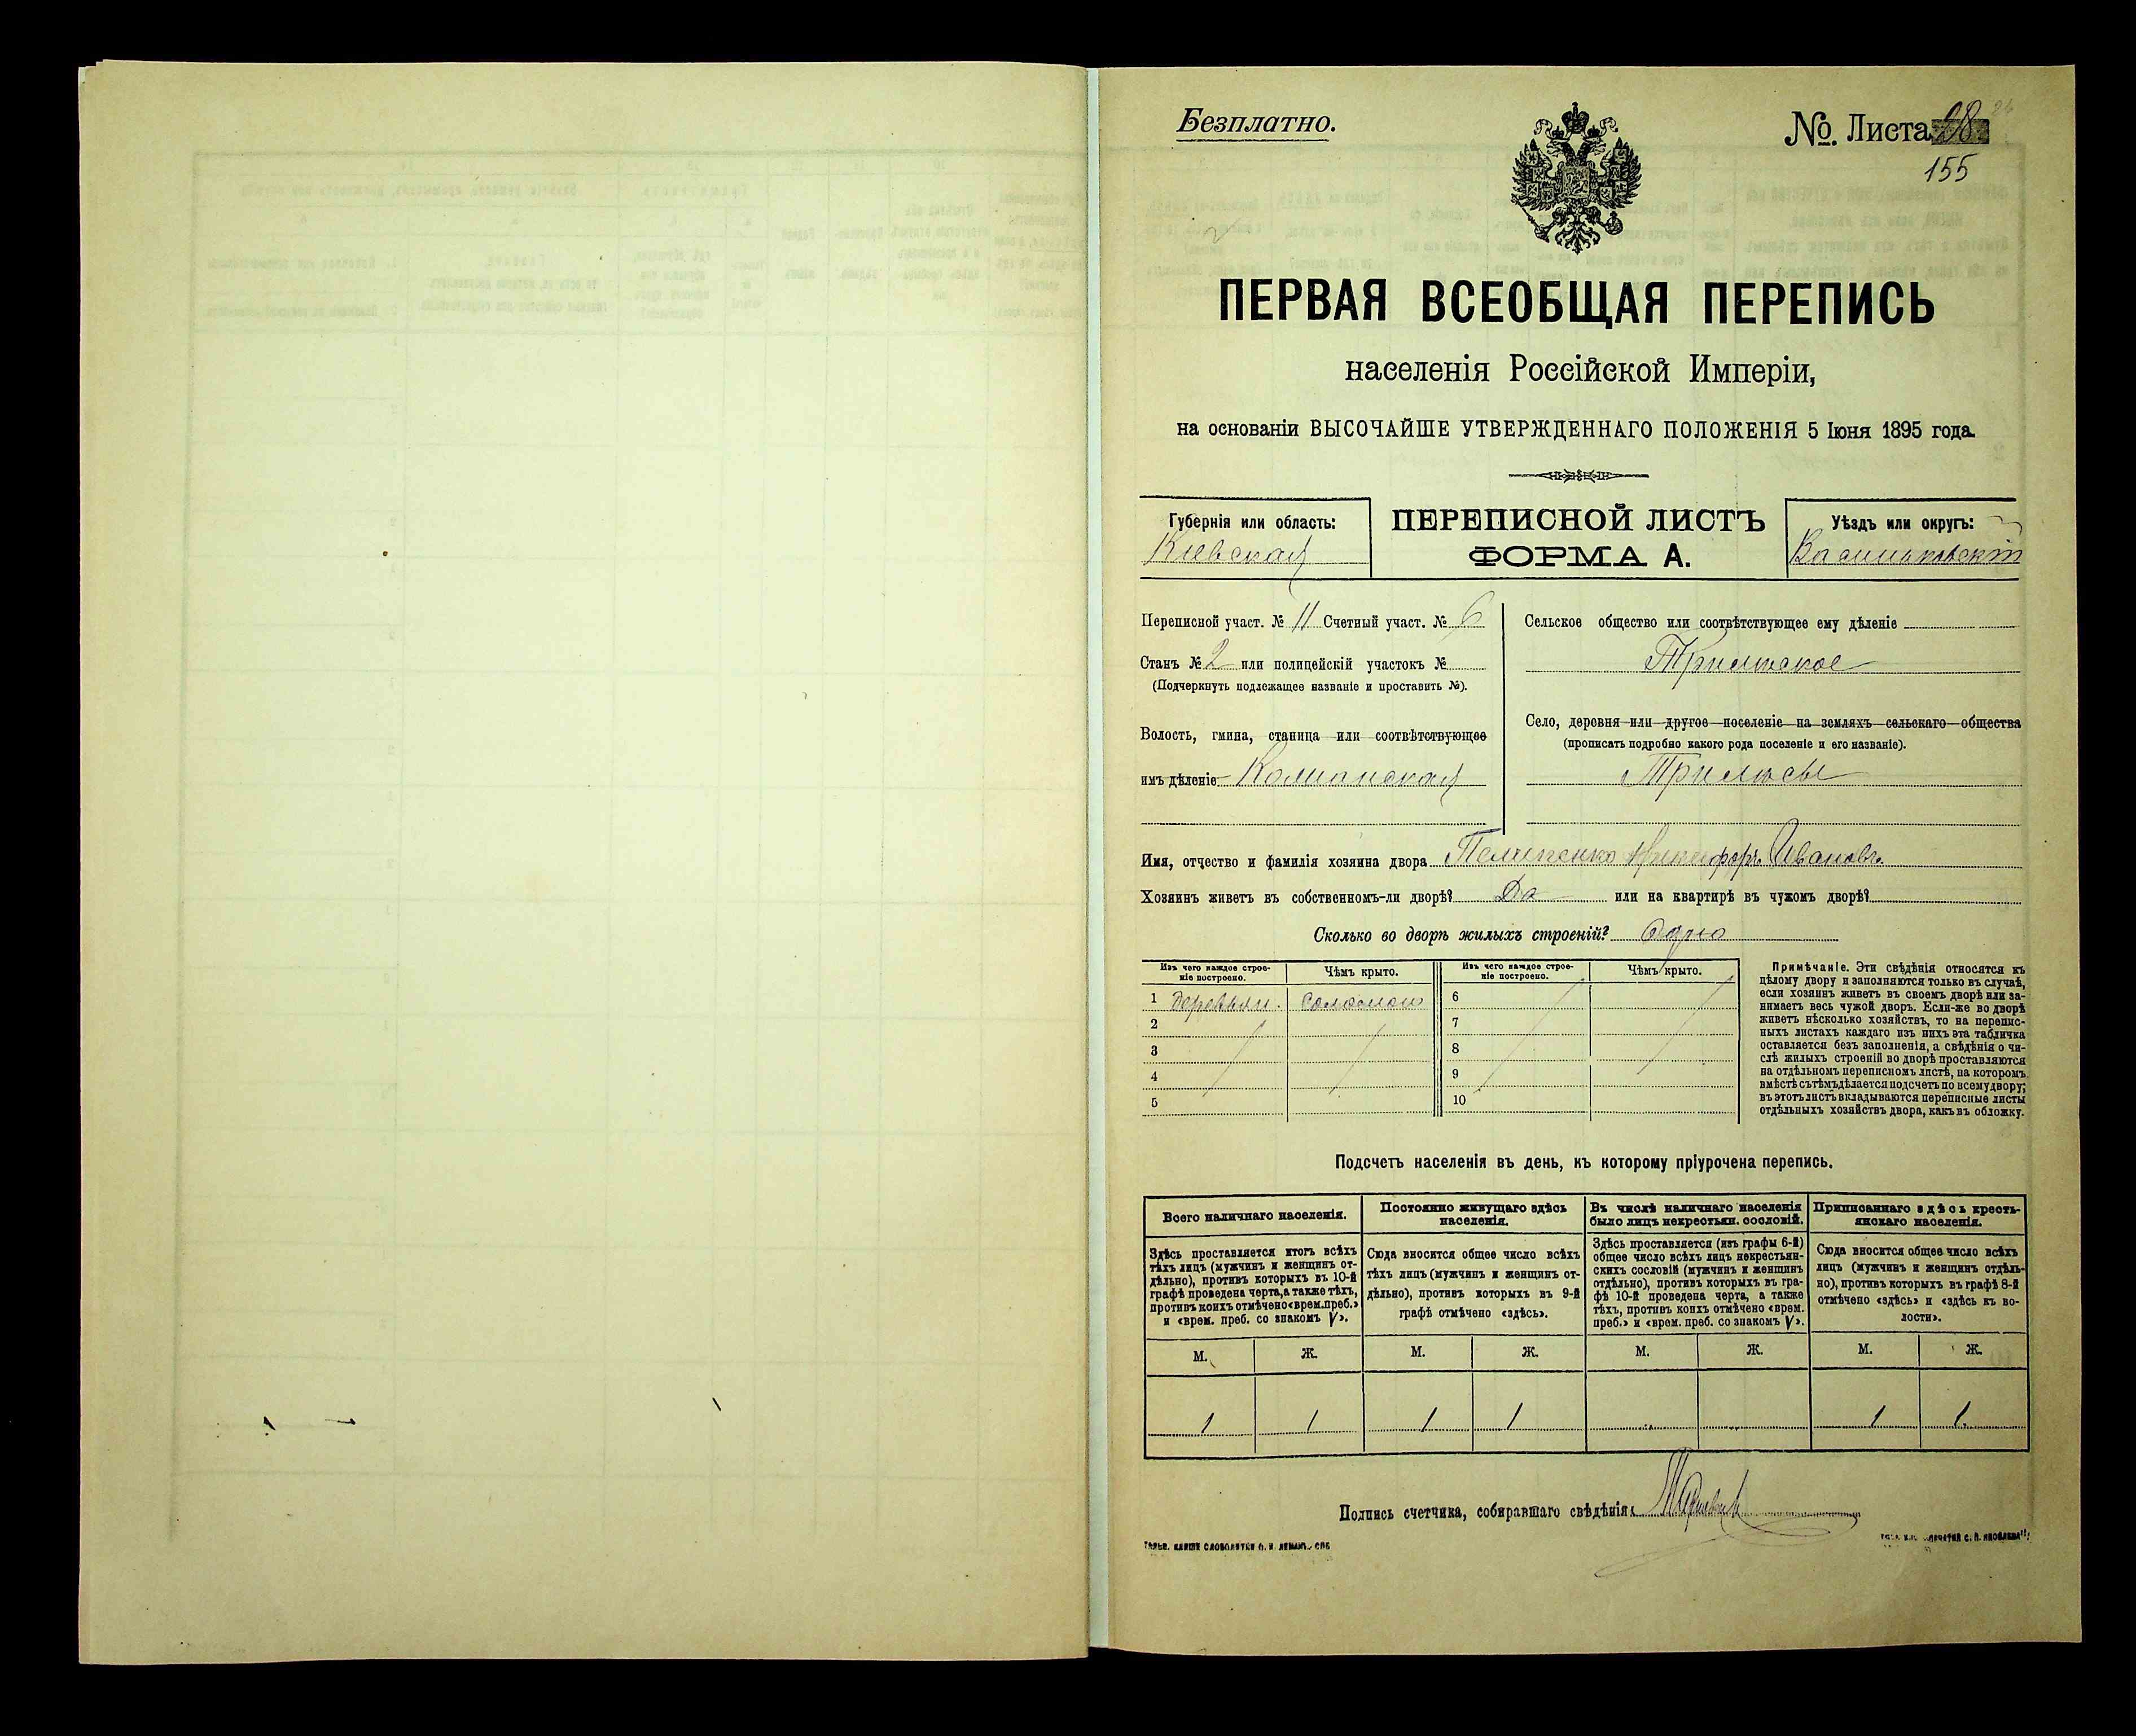 Безплатно.
№ Листа 28
155
ПЕРВАЯ ВСЕОБЩАЯ ПЕРЕПИСЬ
населенія Россійской Имперіи,
на основаніи ВЫСОЧАЙШЕ УТВЕРЖДЕННАГО ПОЛОЖЕНІЯ 5 Іюня 1895 года.
Губернія или область:
Кіевская
ПЕРЕПИСНОЙ ЛИСТЪ
ФОРМА А.
Уѣздъ или округъ:
Васильковскій
Переписной участ. № 11 Счетный участ. № 6
Станъ № 2 или полицейскій участокъ №
(Подчеркнуть подлежащее названіе и проставить №).
Волость, гмина, станица или соотвѣтствующее
имъ дѣленіе
Сельское общество или соотвѣтствующее ему дѣленіе
Трилѣсское
Село, деревня или другое поселеніе на земляхъ сельскаго общества
(прописать подробно какого рода поселеніе и его названіе).
Трилѣсы
Имя, отчество и фамилія хозяина двора Пелипенко Никифоръ Ивановъ
Хозяинъ живетъ въ собственномъ-ли дворѣ? Да или на квартирѣ въ чужомъ дворѣ?
Сколько во дворѣ жилыхъ строеній? Одно
Изъ чего каждое строе-
ніе построено.
Чѣмъ крыто.
Изъ чего каждое строе-
ніе построено.
Чѣмъ крыто.
1 Деревян. Соломою 6
2 7
3 8
4 9
5 10
Примѣчаніе. Эти свѣдѣнія относятся къ
цѣлому двору и заполняются только въ случаѣ,
если хозяинъ живетъ въ своемъ дворѣ или за-
нимаетъ весь чужой дворъ. Если-же во дворѣ
живетъ нѣсколько хозяйствъ, то на перепис-
ныхъ листахъ каждаго изъ нихъ эта табличка
оставляется безъ заполненія, а свѣдѣнія о чи-
слѣ жилыхъ строеній во дворѣ проставляются
на отдѣльномъ переписномъ листѣ, на которомъ
вмѣстѣ съ тѣмъ дѣлается подсчетъ по всему двору;
въ этотъ листъ вкладываются переписные листы
отдѣльныхъ хозяйствъ двора, какъ въ обложку.
Подсчетъ населенія въ день, къ которому пріурочена перепись.
Всего наличнаго населенія.
Постоянно живущаго здѣсь
населенія.
Въ числѣ наличнаго населенія
было лицъ некрестьян. сословій.
Приписаннаго здѣсь кресть-
янскаго населенія.
Здѣсь проставляется итогъ всѣхъ
тѣхъ лицъ (мужчинъ и женщинъ от-
дѣльно), противъ которыхъ въ 10-й
графѣ проведена черта, а также тѣхъ,
противъ коихъ отмѣчено «врем. преб.»
и «врем. преб. со знакомъ V».
Сюда вносится общее число всѣхъ
тѣхъ лицъ (мужчинъ и женщинъ от-
дѣльно), противъ которыхъ въ 9-й
графѣ отмѣчено «здѣсь».
Здѣсь проставляется (изъ графы 6-й)
общее число всѣхъ лицъ некрестьян-
скихъ сословій (мужчинъ и женщинъ
отдѣльно), противъ которыхъ въ гра-
фѣ 10-й проведена черта, а также
тѣхъ, противъ коихъ отмѣчено «врем.
преб.» и «врем. преб. со знакомъ V».
Сюда вносится общее число всѣхъ
лицъ (мужчинъ и женщинъ отдѣль-
но), противъ которыхъ въ графѣ 8-й
отмѣчено «здѣсь» и «здѣсь къ во-
лости».
М. Ж. М. Ж. М. Ж. М. Ж.
1 1 1 1 1 1
Подпись счетчика, собиравшаго свѣдѣнія